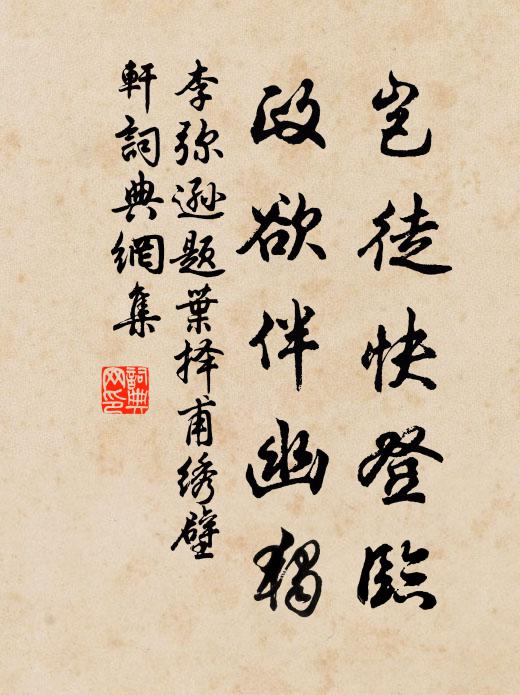 岂徒快登臨
政欲伴幽獨
李弥遜題葉择甫绣壁
軒詞典網集
詞典
网印